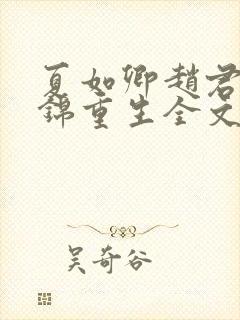 夏如卿趙君
錦重生全文
吴奇谷